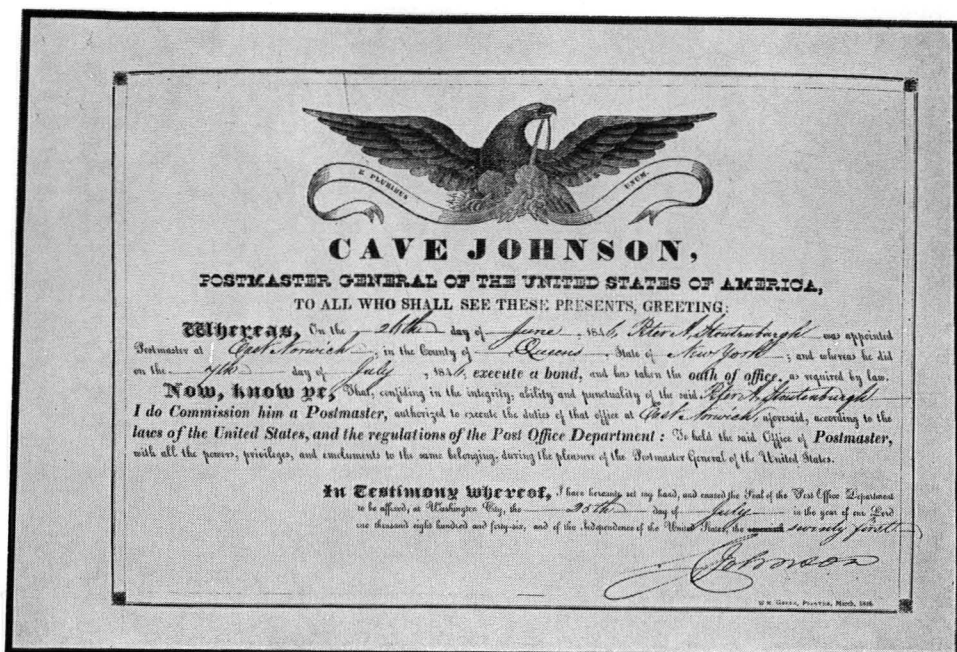 E PLURIBUS UNUM.
CAVE JOHNSON,
POSTMASTER GENERAL OF THE UNITED STATES OF AMERICA,
TO ALL WHO SHALL SEE THESE PRESENTS, GREETING:
Whereas, On the 26th day of June, 1846, Peter A. Stoutenburgh was appointed
Postmaster at East Norwich, in the County of Queens, State of New York; and whereas he did
on the 7th day of July, 1846, execute a bond, and has taken the oath of office, as required by law.
Now, know ye, That, confiding in the integrity, ability and punctuality of the said Peter A. Stoutenburgh
I do Commission him a Postmaster, authorized to execute the duties of that office at East Norwich, aforesaid, according to the
laws of the United States, and the regulations of the Post Office Department: To hold the said Office of Postmaster,
with all the powers, privileges, and emoluments to the same belonging, during the pleasure of the Postmaster General of the United States.
In Testimony whereof, I have hereunto set my hand, and caused the Seal of the Post Office Department
to be affixed, at Washington City, the 25th day of July in the year of our Lord
one thousand eight hundred and forty-six, and of the Independence of the United States, the seventy first
C Johnson
Green, Printer, March, 1846